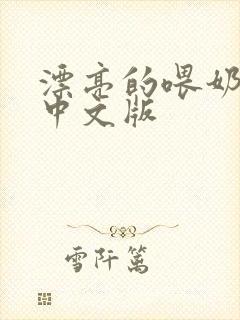 漂亮的喂奶
中文版
雪阡篱